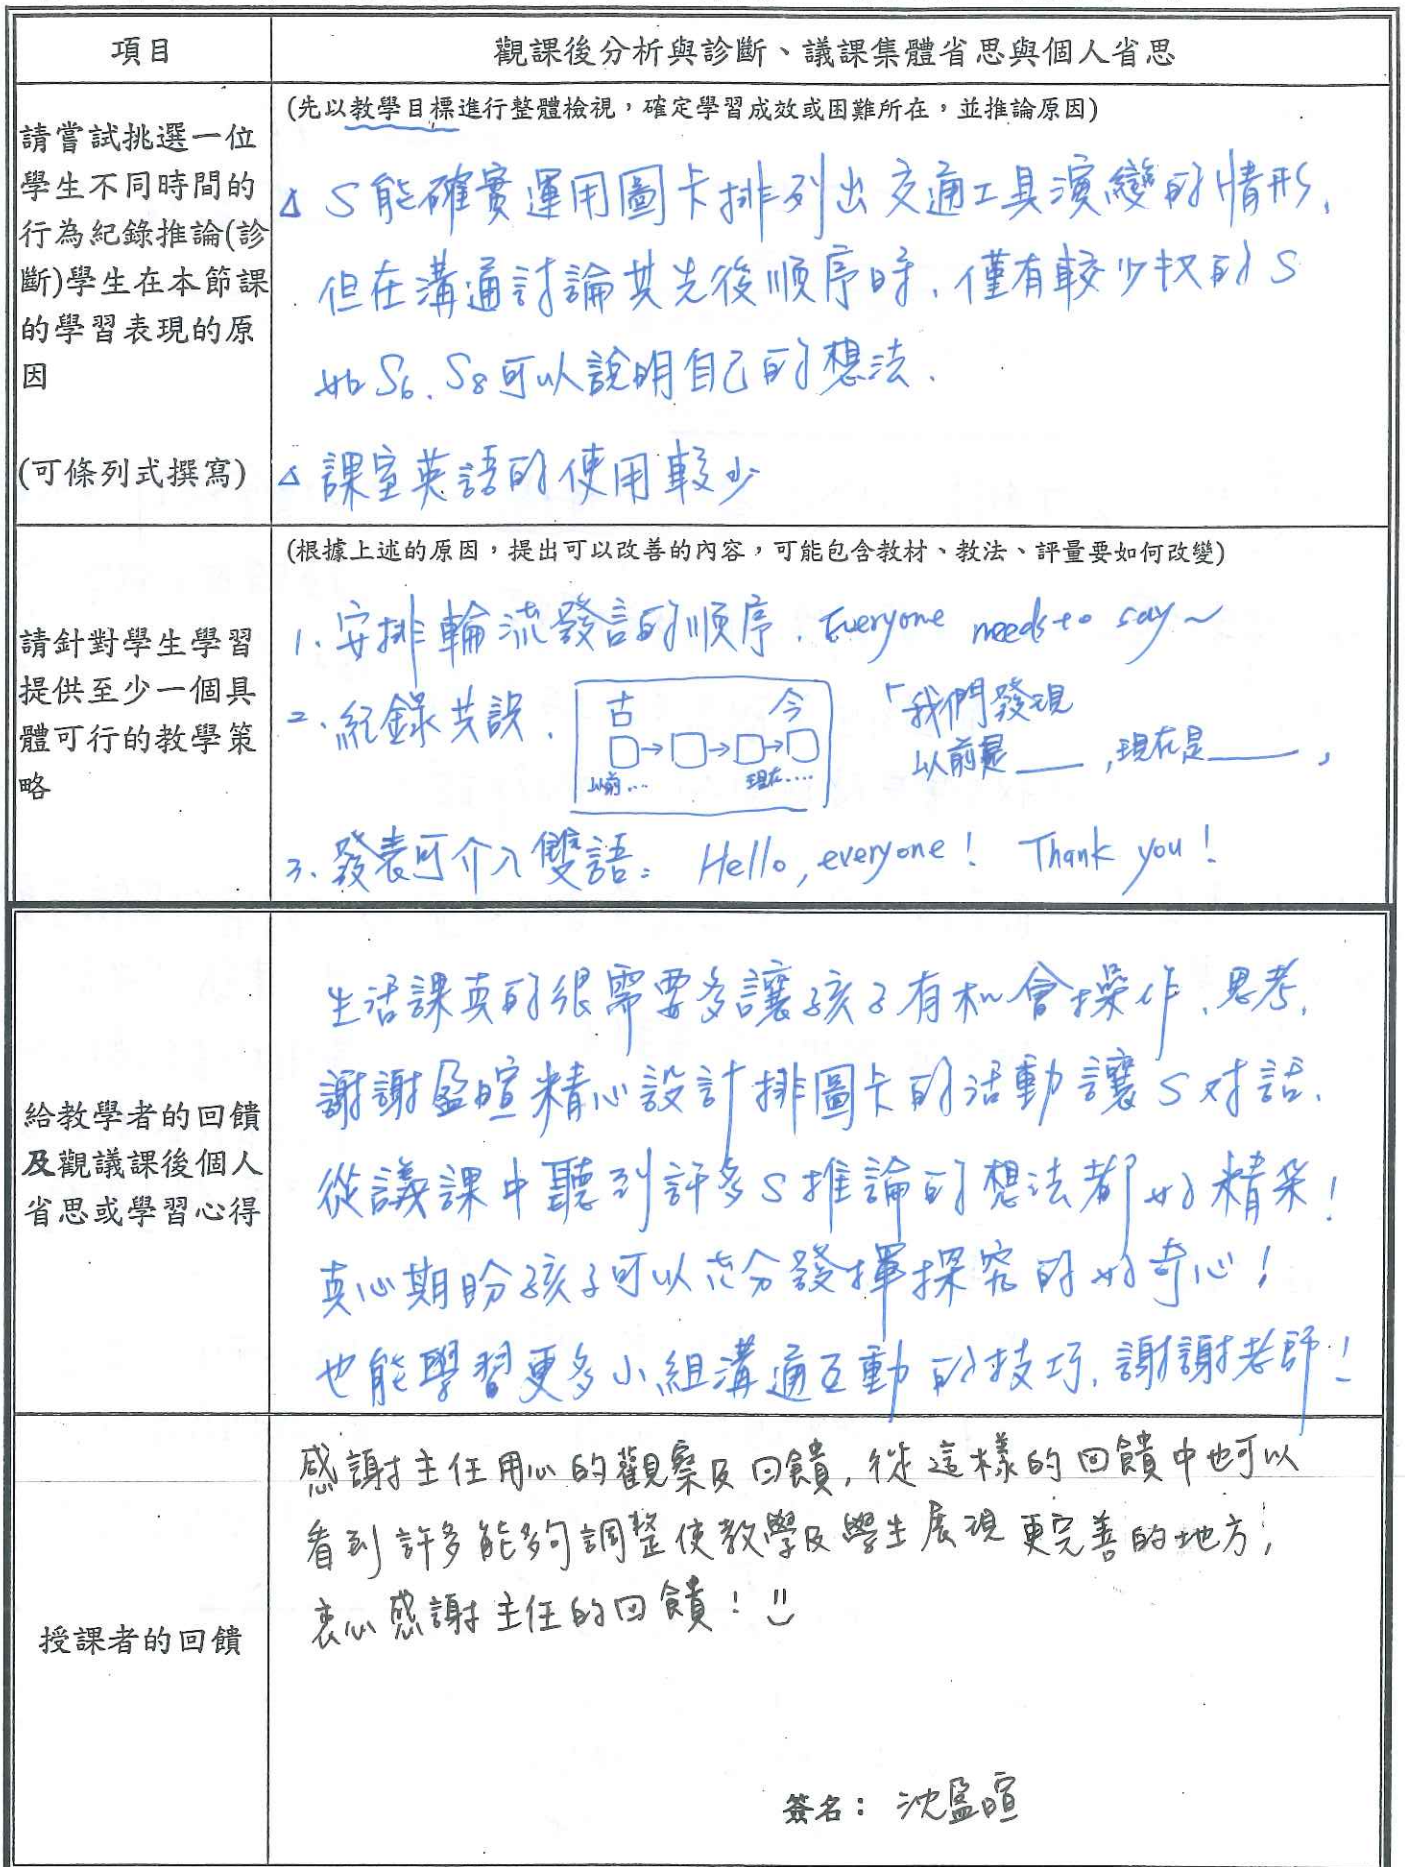 項目
觀課後分析與診斷、議課集體省思與個人省思
請嘗試挑選一位
學生不同時間的
行為紀錄推論(診
斷)學生在本節課
的學習表現的原
因
(可條列式撰寫)
(先以教學目標進行整體檢視，確定學習成效或困難所在，並推論原因)
△ S能確實運用圖卡排列出交通工具演變的情形、
但在溝通討論其先後順序時、僅有較少數的S
如S6、S8可以說明自己的想法、
△ 課室英語的使用較少
請針對學生學習
提供至少一個具
體可行的教學策
略
(根據上述的原因，提出可以改善的內容，可能包含教材、教法、評量要如何改變)
1、安排輪流發言的順序、Everyone needs to say～
2、紀錄共識、
古 今
□→□→□→□
以前… 現在‥‥
「我們發現
以前是___，現在是____，
3、發表可介入雙語：Hello, everyone! Thank you!
給教學者的回饋
及觀議課後個人
省思或學習心得
生活課真的很需要多讓孩子有机會操作、思考、
謝謝盈暄精心設計排圖卡的活動讓S对話、
從議課中聽到許多S推論的想法都好精采！
真心期盼孩子可以充分發揮探究的好奇心！
也能學習更多小組溝通互動的技巧、謝謝老師！
授課者的回饋
感謝主任用心的觀察及回饋，從這樣的回饋中也可以
看到許多能夠調整使教學及學生展現更完善的地方，
衷心感謝主任的回饋！
簽名：沈盈暄